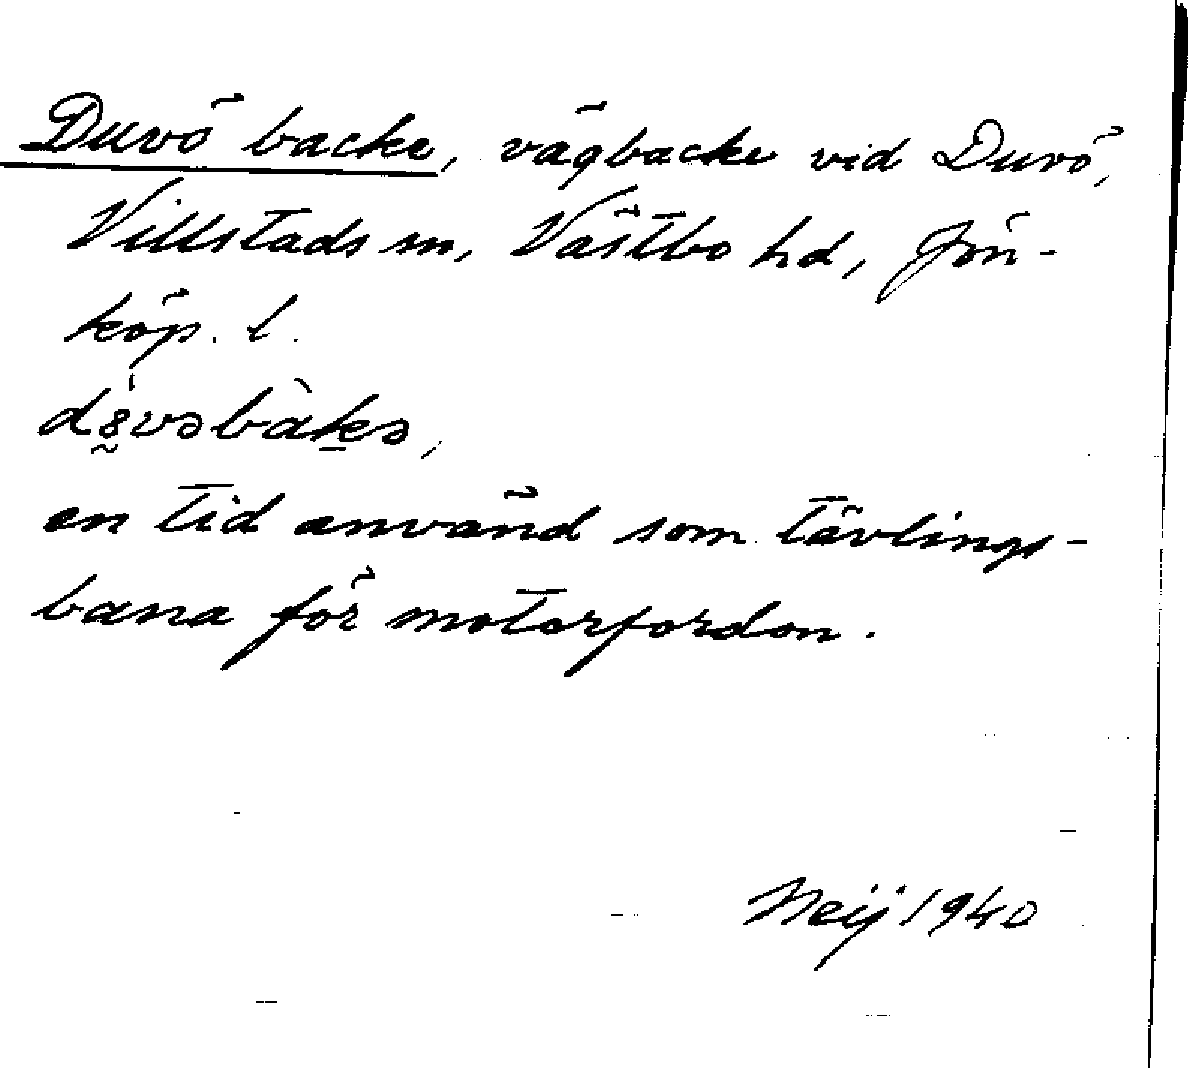 Duvö backe, vägbacke vid Duvö,
Villstads sn, Västbo hd, Jön-
köp. l.
en tid använd som tävlings-
bana för motorfordon.
Neij 1940